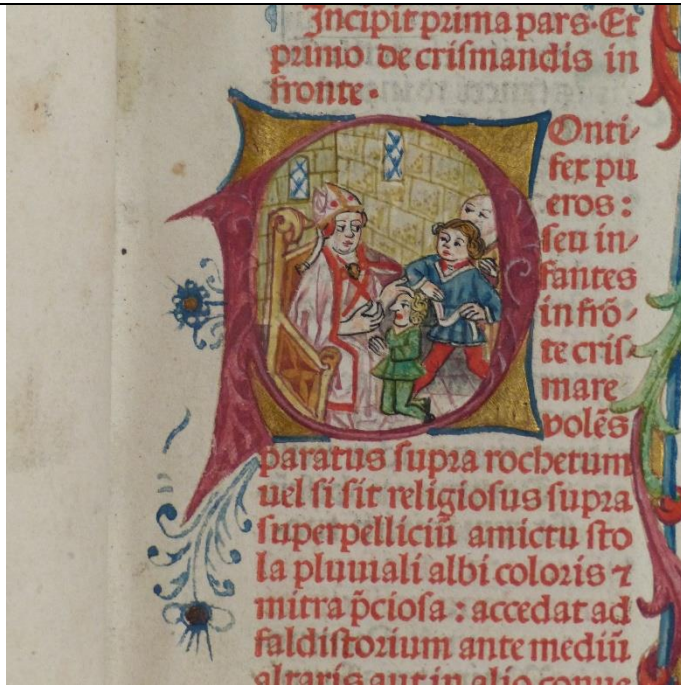 Incipit prima pars. Et
primo de crismandis in
fronte.
Ponti⸗
fex pu
eros:
seu in⸗
fantes
in frō⸗
te cris⸗
mare
volēs
paratus supra rochetum
uel si sit religiosus supra
superpelliciū amictu sto
la pluuiali albi coloris ⁊
mitra p̄ciosa: accedat ad
faldistorium ante mediū
altaris aut in alio conue